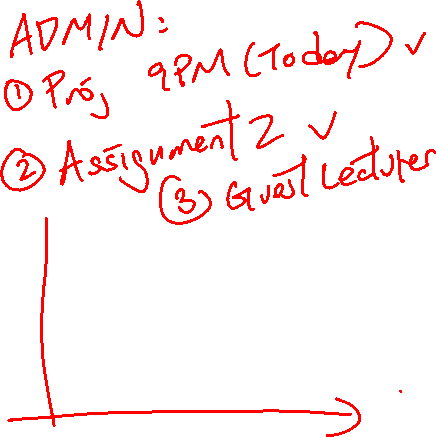 ADMIN:
① Proj 9PM (Today) ✓
② Assignment 2 ✓
③ Guest Lecturer